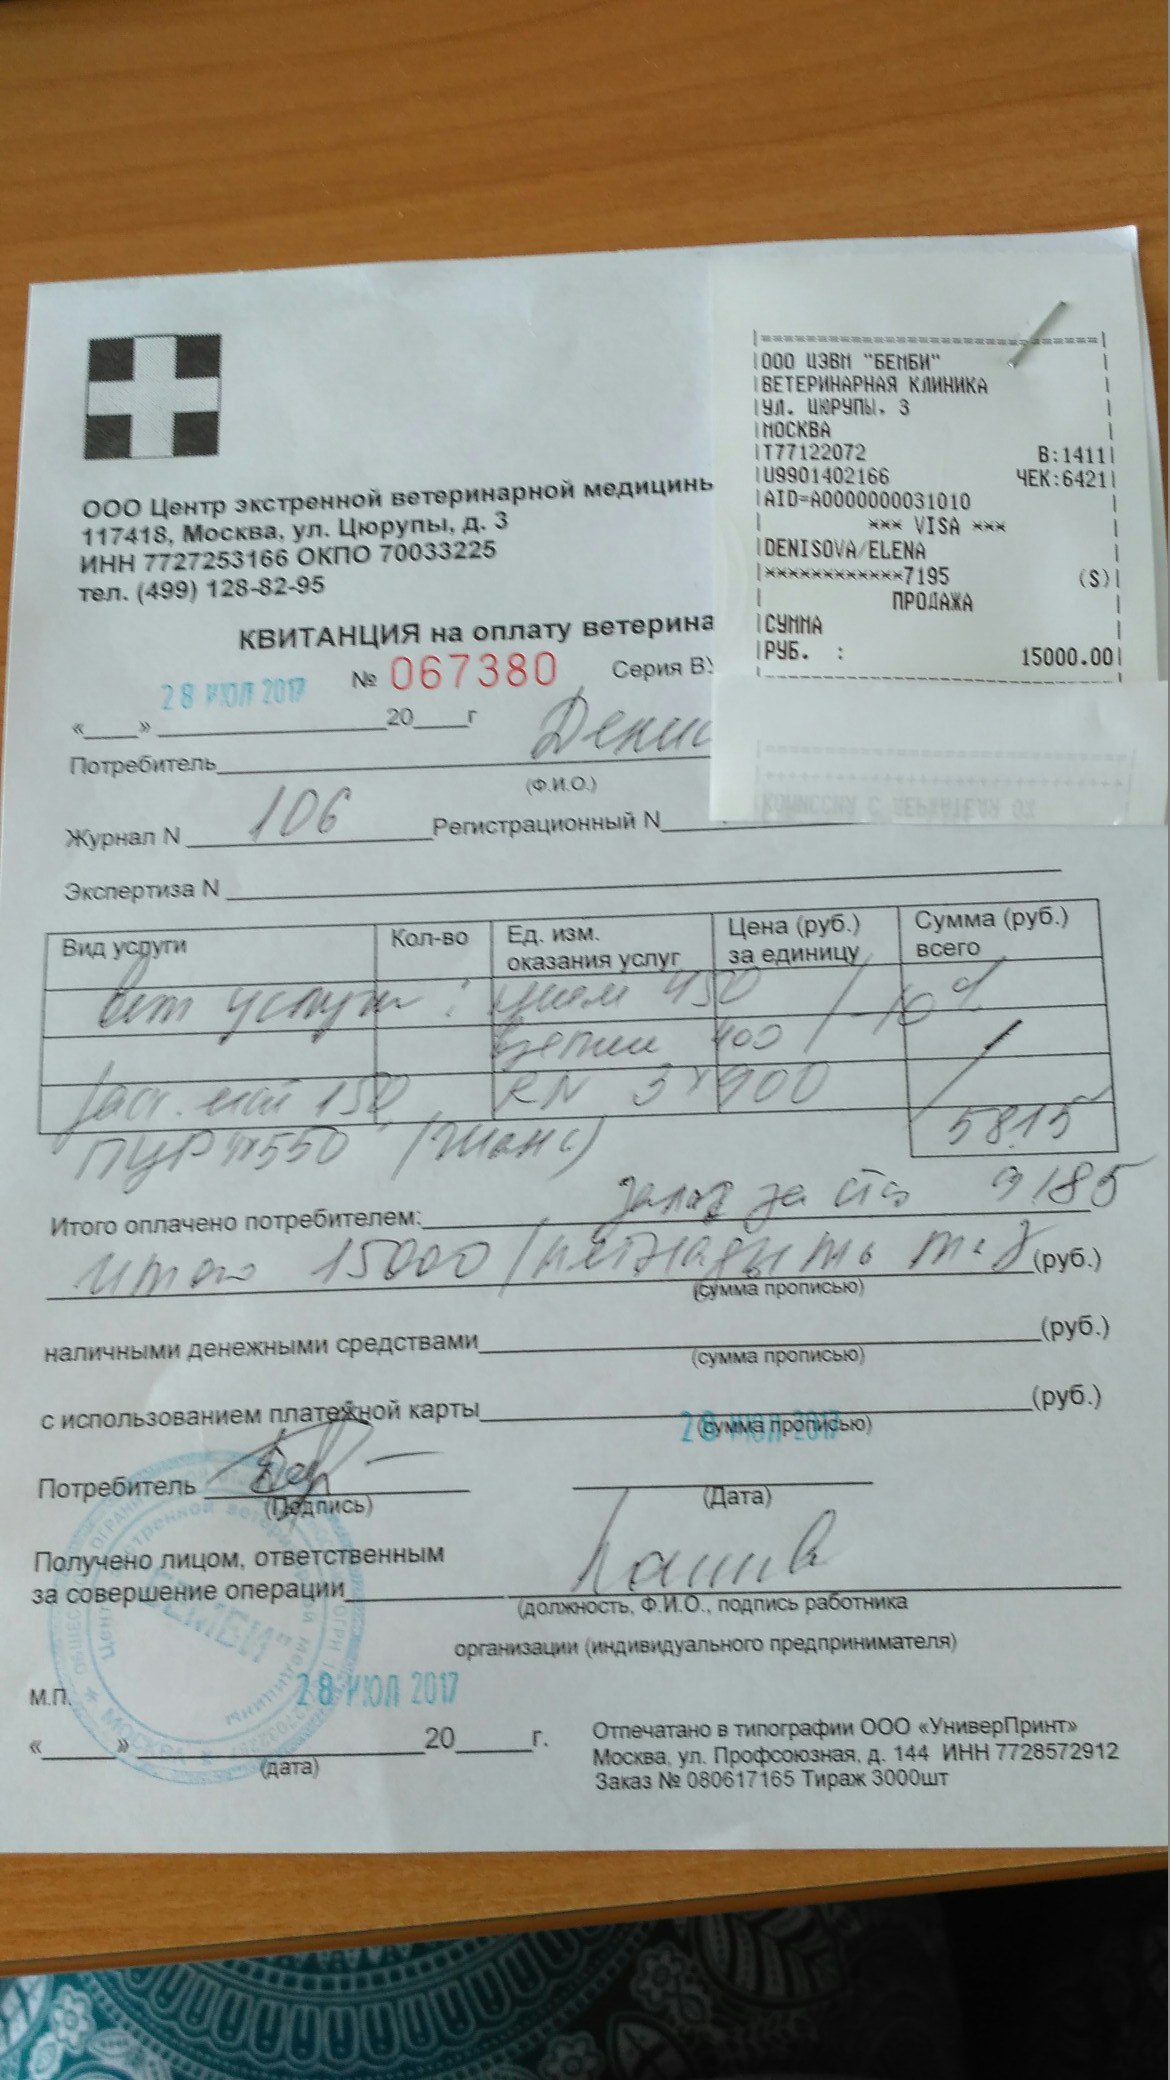 ООО Центр экстренной ветеринарной медицины
117418, Москва, ул. Цюрупы, д. 3
ИНН 7727253166 ОКПО 70033225
тел. (499) 128-82-95
ООО ЦЭВМ "БЕМБИ"
ВЕТЕРИНАРНАЯ КЛИНИКА
УЛ. ЦЮРУПЫ. 3
МОСКВА
Т77122072 В:1411
U9901402166 ЧЕК:6421
AID=A0000000031010
*** VISA ***
DENISOVA/ELENA
************7195 (S)
ПРОДАЖА
СУММА
РУБ. : 15000.00
КВИТАНЦИЯ на оплату ветерина
№ 067380 Серия ВУ
28 ИЮЛ 2017
«___» ___ 20___г
Потребитель Денис
(Ф.И.О.)
Журнал N 106 Регистрационный N
Экспертиза N
Вид услуги Кол-во Ед. изм. оказания услуг Цена (руб.) за единицу Сумма (руб.) всего
вет услуги: прием 450 / -10%
400
150 RN 3х900
ПЦР 550 5815
Итого оплачено потребителем: залог за 9185
итого 15000 (пятнадцать (руб.)
(сумма прописью)
наличными денежными средствами (руб.)
(сумма прописью)
с использованием платежной карты (руб.)
(сумма прописью)
28 ИЮЛ 2017
Потребитель
(Подпись) (Дата)
Получено лицом, ответственным
за совершение операции
(должность, Ф.И.О., подпись работника
организации (индивидуального предпринимателя)
М.П.
28 ИЮЛ 2017
«___» ___ 20___г.
(дата)
Отпечатано в типографии ООО «УниверПринт»
Москва, ул. Профсоюзная, д. 144 ИНН 7728572912
Заказ № 080617165 Тираж 3000шт